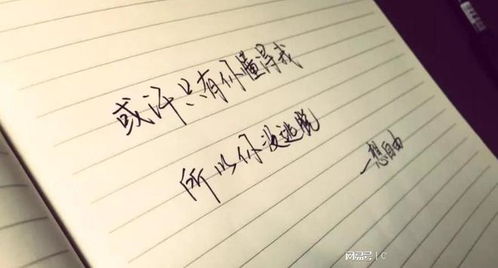 或许只有你懂得我
所以你没逃脱
—想自由
网易号 | C